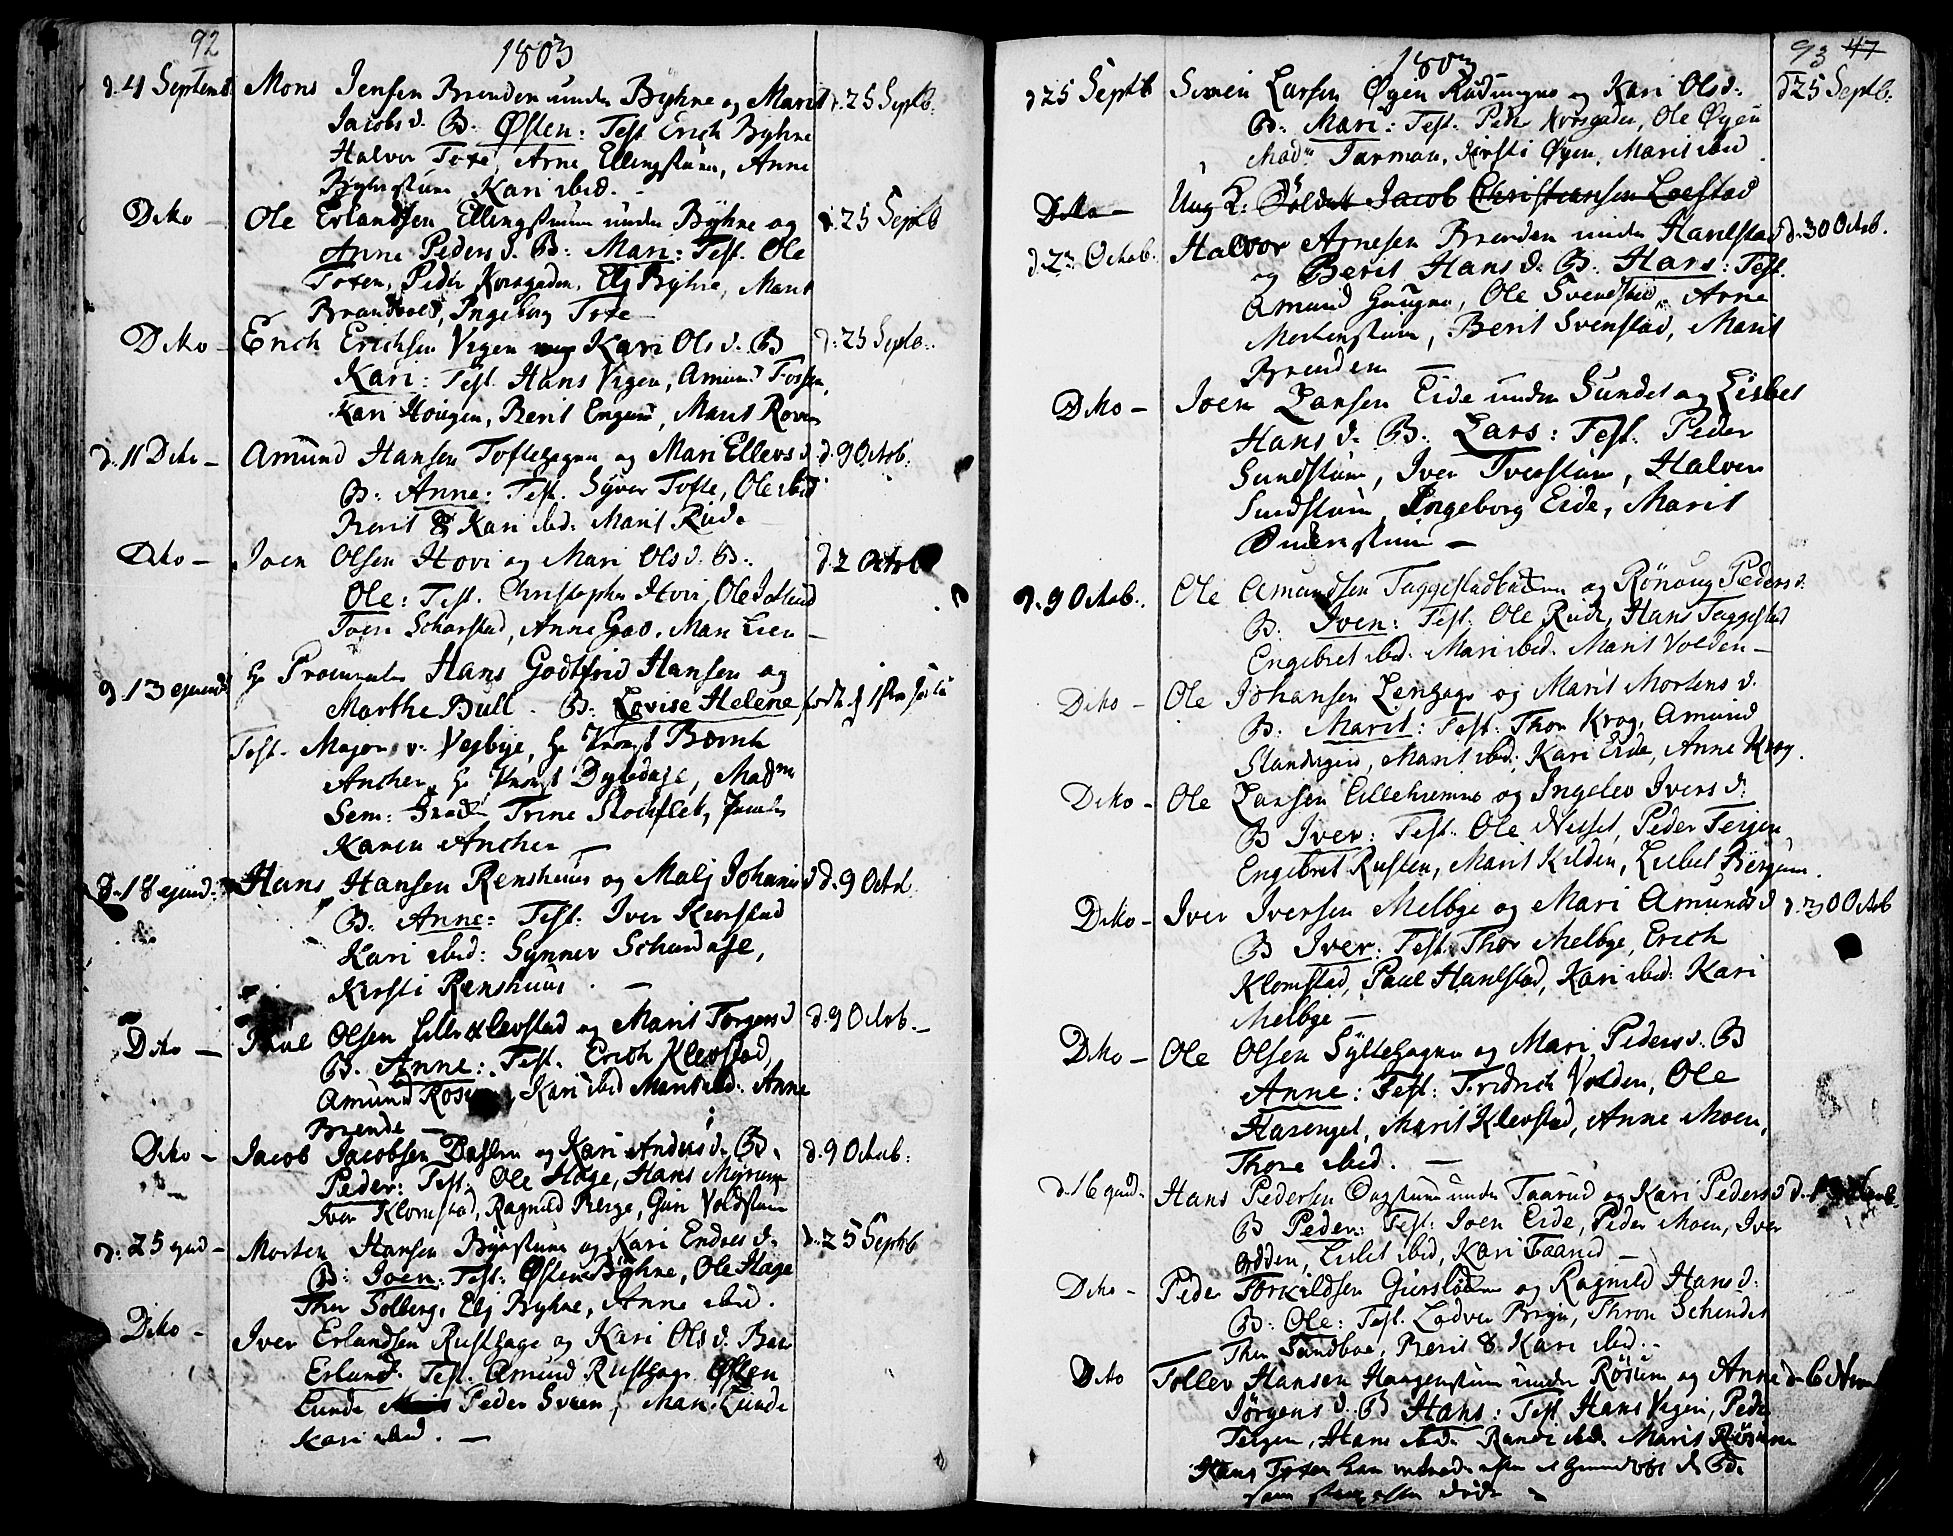 92
1803
d. 4 Septemb. Mons Jensen Brenden under Byhne og Marit d. 25 Septb.
Jacobs d. B. Østen: Test. Erich Byhne
Halvor Tofte, Arne Ellingstuen, Anne
Byhnstuen Kari ibid. -
Dito - Ole Erlandsen Ellingstuen under Byhne og d. 25 Septb
Anne Peders d. B: Mari: Test. Ole
Toxen, Peder Korsgaden, Elj Byhne, Marit
Brandvold, Ingeborg Tofte -
Dito - Erich Erichsen Vigen og Kari Ols d. B d. 25 Septb.
Kari: Test. Hans Vigen, Amund Fossen,
Kari Hougen, Berit Engum, Marit Roven
d. 11 Dito - Amund Hansen Toftehagen og Mari Ellevs d. d. 9 Octob.
B: Anne: Test. Syver Tofte, Ole ibid
Berit & Kari ibid. Marit Rud.
Dito - Joen Olsen Hovi og Mari Ols d. B. d. 2 Octob
Ole: Test. Christopher Hovi, Ole
Joen Scharstad, Anne Gad. Mari Lien -
d. 13 ejusd Hr Procurator Hans Godtfrid Hansen og
Marthe Bull. B: Lovise Helene, født d 1ste Juli
Test. Major v. Vejbye, Hr Provst Bernt
Ancher, Hr Provst Dybdahl, Madme
Sem: Trine Stockflet, Jomfr
Karen Ancher -
d. 18 ejusd. Hans Hansen Renshuus og Malj Johanis d d. 9 Octob.
B. Anne: Test. Iver Kiorstad
Kari ibid: Synnev Schurdahl,
Kirsti Renshuus. -
Dito - Poul Olsen Lille Klevstad og Marit Torgers d d. 9 Octob. -
B. Anne: Test. Erich Klevstad,
Amund, Kari ibid Marit ibid. Anne
Brende -
Dito - Jacob Jacobsen Dahlen og Kari Anders d. B. d. 9 Octob:
Peder: Test. Ole Hage, Hans Myrum
Iver Klomstad, Ragnild Berge, Guri Voldstuen
d. 25 ejusd - Morten Hansen Byestuen og Kari Endres d. d. 25 Septb
B: Joen: Test: Østen Byhne, Ole Hage
Thor Solberg, Elj Byhne, Anne ibid.
Dito - Iver Erlandsen Rusthage og Kari Ols d. Barn
Erland. Test. Amund Rusthage Østen
Lunde Peder Sveen, Mari Lunde
Kari ibid. -
93 47
1803
d 25 Septb Simen Larsen Øyen Rudingne og Kari Ols d. d 25 Septb.
B: Mari: Test: Peder Korsgaden, Ole Øyen
Madm Jarman, Kirsti Øyen, Marit ibid
Dito - Ung K: Soldat Jacob Christiansen Loestad
d. 2n Octob. Halvor Arnesen Brenden under Harilstad d. 30 Octob.
og Berit Hans d. B. Hans: Test.
Amund, Ole Svendstad, Arne
Mortenstuen, Berit Svenstad, Marit
Brenden -
Dito - Joen Larsen Eide under Sundet og Lisbet
Hans d. B. Lars: Test. Peder
Sundstuen, Iver Tverstuen, Halvor
Sundstuen, Ingeborg Eide, Marit
-
d. 9 Octob. Ole Amundsen Taggestadbakken og Rønoug Peders d.
B. Iven: Test. Ole Rud, Hans Taggestad
Engebret ibid. Mari ibid. Marit Volden -
Dito - Ole Johansen Lenhage og Marit Mortens d.
B. Marit: Test: Thor Krog, Amund
Marit ibid. Kari Eide, Anne Krog.
Dito - Ole Larsen Lillehiemme og Ingelev Ivers d.
B Iver: Test: Ole, Peder Tergen
Engebret Rusten, Marit Kilden, Lisbet Bergum.
Dito - Iver Iversen Melbye og Mari Amunds d d. 30 Octob
B Iver: Test: Thor Melbye, Erich
Klomstad, Paul Harilstad, Kari ibid: Kari
Melbye -
Dito - Ole Olsen Syltehagen og Mari Peders d. B
Anne: Test: Fridrich Volden, Ole
Hasenget, Marit Klevstad, Anne Moen,
Thore ibid. -
d. 16 ejusd. Hans Pedersen Dagstuen under Taarud og Kari Peders d
B Peder: Test: Joen Eide, Peder Moen, Iver
Odden, Lisbet ibid, Kari Taarud -
Dito - Peder Torkildsen og Ragnild Hans d.
B. Ole: Test. Lodver Bryn, Thron Schendes
Thor Sundboe, Berit & Kari ibid.
Dito Tollev Hansen Haagenstuen under Røsum og Anne d. 6
Jørgens d. B Hans: Test Hans Vigen, Peder
Tergen, Hans ibid. Randi ibid. Marit Røsum